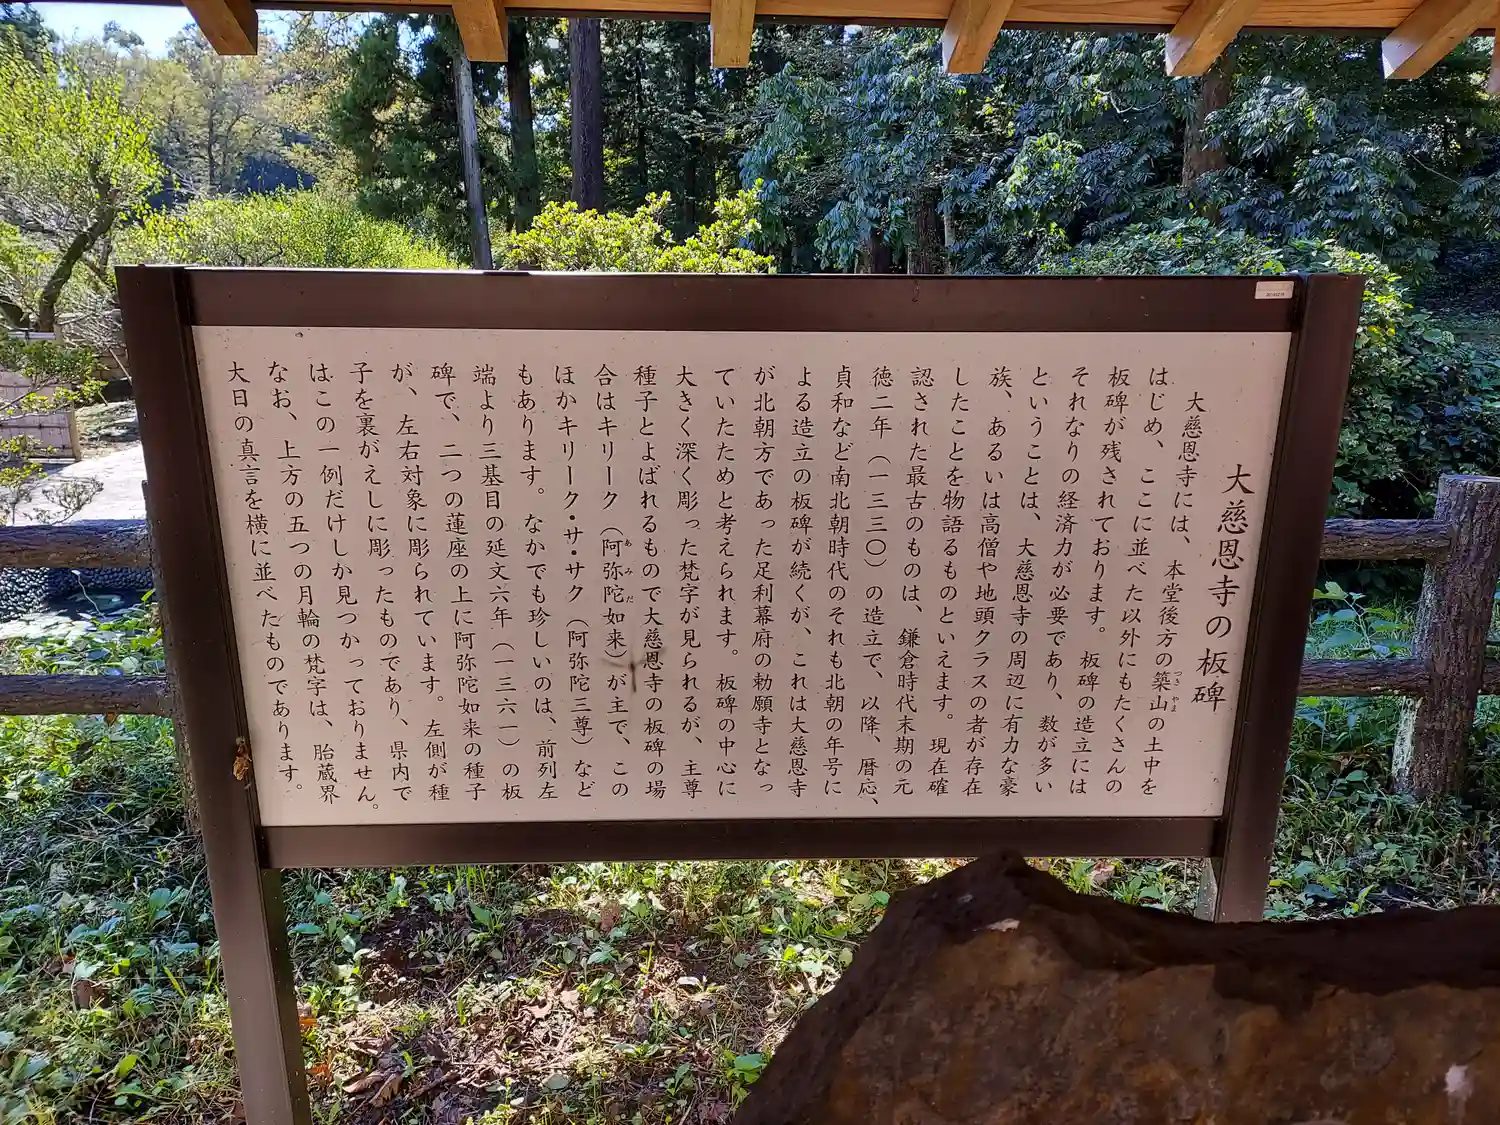 大慈恩寺の板碑
大慈恩寺には、本堂後方の築山の土中を
はじめ、ここに並べた以外にもたくさんの
板碑が残されております。板碑の造立には
それなりの経済力が必要であり、数が多い
ということは、大慈恩寺の周辺に有力な豪
族、あるいは高僧や地頭クラスの者が存在
したことを物語るものといえます。現在確
認された最古のものは、鎌倉時代末期の元
徳二年（一三三〇）の造立で、以降、暦応、
貞和など南北朝時代のそれも北朝の年号に
よる造立の板碑が続くが、これは大慈恩寺
が北朝方であった足利幕府の勅願寺となっ
ていたためと考えられます。板碑の中心に
大きく深く彫った梵字が見られるが、主尊
種子とよばれるもので大慈恩寺の板碑の場
合はキリーク（阿弥陀如来）が主で、この
ほかキリーク・サ・サク（阿弥陀三尊）など
もあります。なかでも珍しいのは、前列左
端より三基目の延文六年（一三六一）の板
碑で、二つの蓮座の上に阿弥陀如来の種子
が、左右対象に彫られています。左側が種
子を裏がえしに彫ったものであり、県内で
はこの一例だけしか見つかっておりません。
なお、上方の五つの月輪の梵字は、胎蔵界
大日の真言を横に並べたものであります。
つき やま
あ み だ